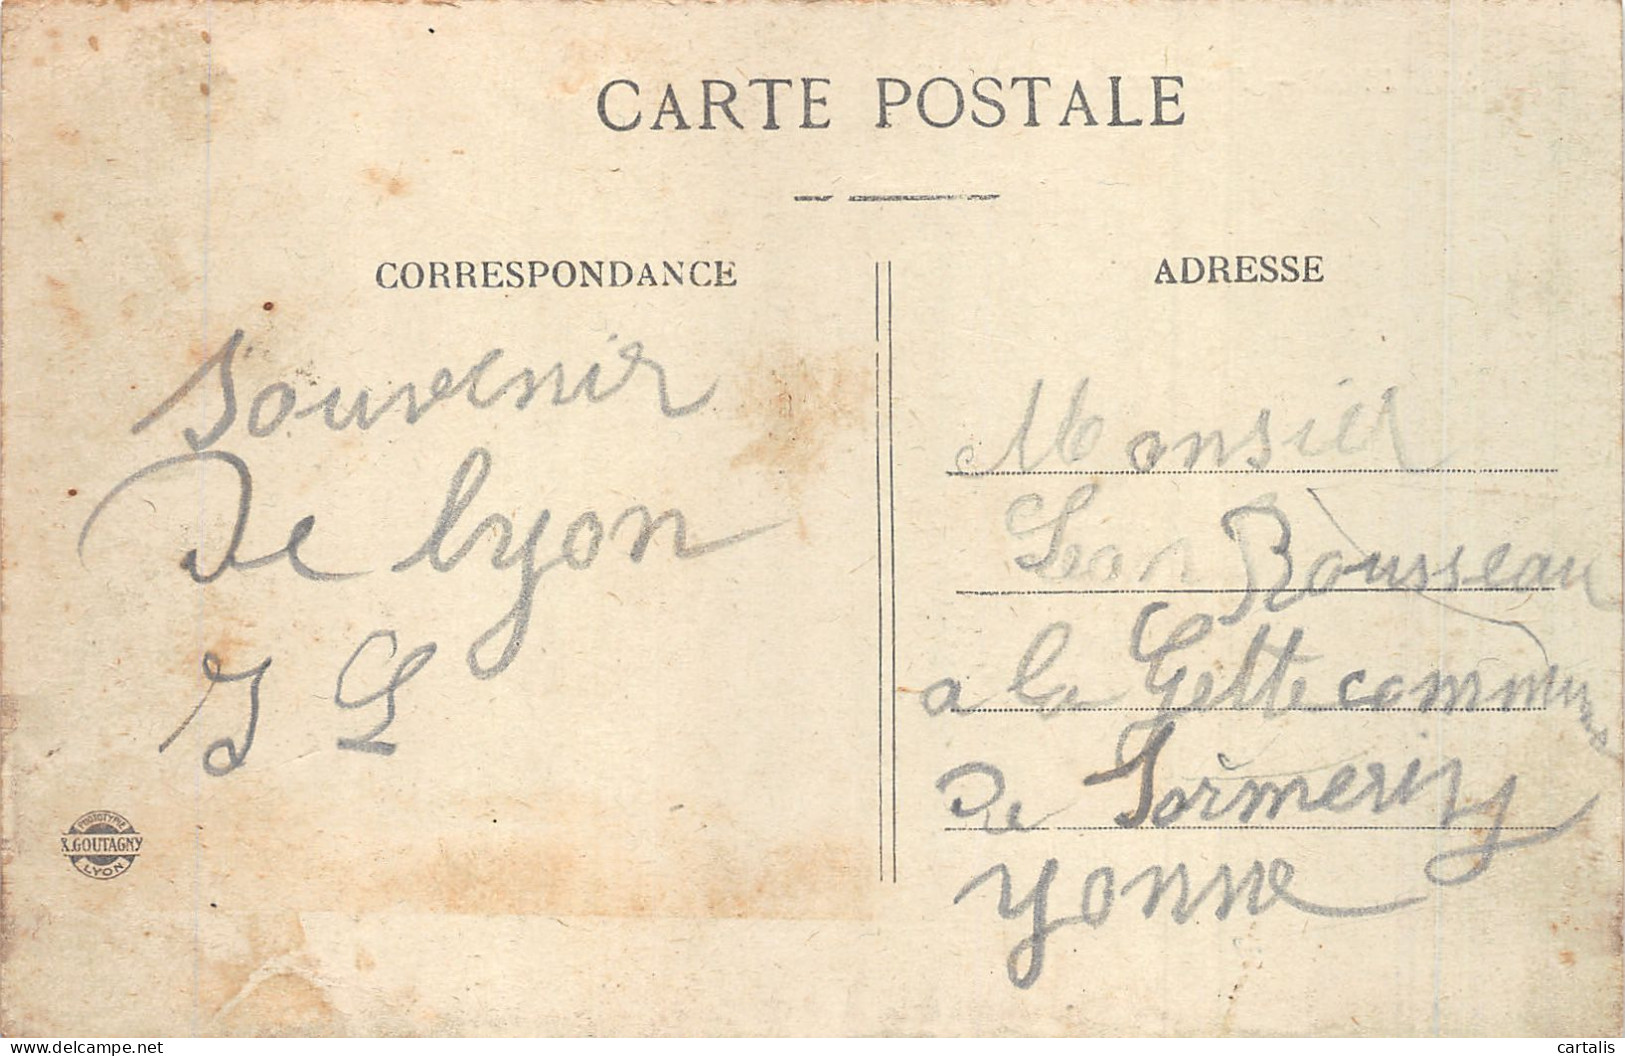 CARTE POSTALE
CORRESPONDANCE
Souvenir
De Lyon
J L
PHOTOTYPIE
X.GOUTAGNY
LYON
ADRESSE
Monsieur
Léon Rousseau
a la Gette commune
De Sormery
Yonne
delcampe.net
cartalis